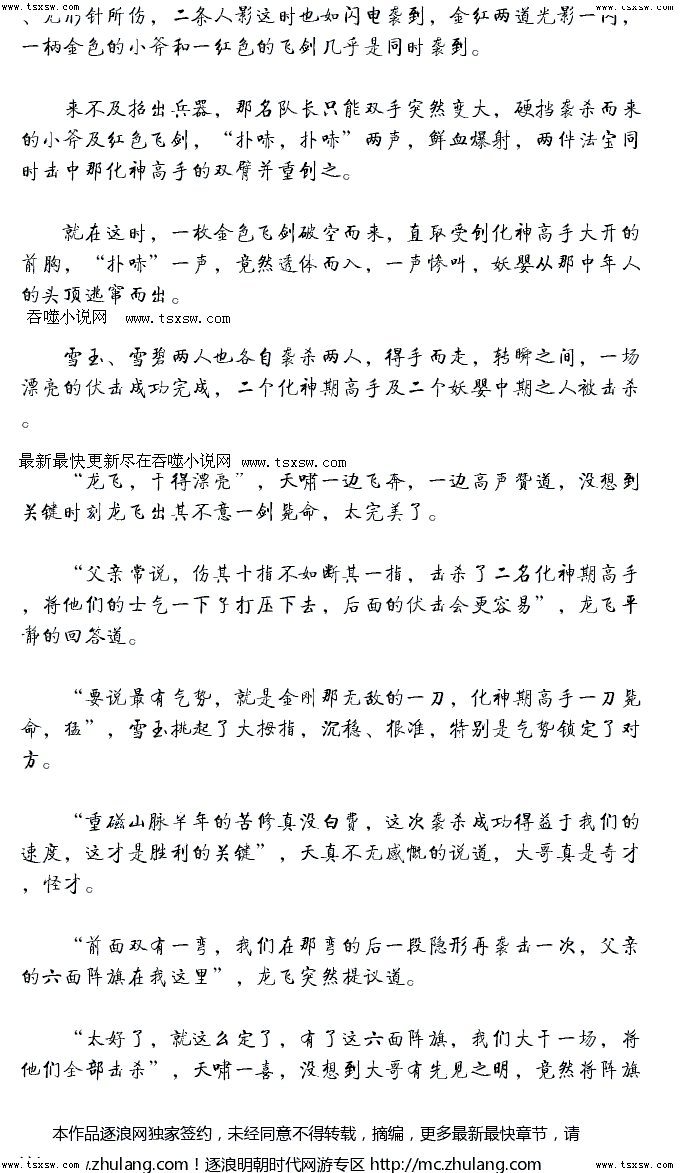 www.tsxsw.com www.tsxsw.com
形针所伤，二条人影这时也如闪电袭到，金红两道光影一闪，
一柄金色的小斧和一红色的飞剑几乎是同时袭到。
来不及招出兵器，那名队长只能双手突然变大，硬挡袭杀而来
的小斧及红色飞剑，“扑哧，扑哧”两声，鲜血爆射，两件法宝同
时击中那化神高手的双臂并重创之。
就在这时，一枚金色飞剑破空而来，直取受创化神高手大开的
前胸，“扑哧”一声，竟然透体而入，一声惨叫，妖婴从那中年人
的头顶逃窜而出。
吞噬小说网 www.tsxsw.com
雪玉、雪碧两人也各自袭杀两人，得手而走，转瞬之间，一场
漂亮的伏击成功完成，二个化神期高手及二个妖婴中期之人被击杀
。
最新最快更新尽在吞噬小说网 www.tsxsw.com
“龙飞，干得漂亮”，天啸一边飞奔，一边高声赞道，没想到
关键时刻龙飞出其不意一剑毙命，太完美了。
“父亲常说，伤其十指不如断其一指，击杀了二名化神期高手
，将他们的士气一下子打压下去，后面的伏击会更容易”，龙飞平
静的回答道。
“要说最有气势，就是金刚那无敌的一刀，化神期高手一刀毙
命，猛”，雪玉挑起了大拇指，沉稳、狠准，特别是气势锁定了对
方。
“重磁山脉半年的苦修真没白费，这次袭杀成功得益于我们的
速度，这才是胜利的关键”，天真不无感慨的说道，大哥真是奇才
，怪才。
“前面双有一弯，我们在那弯的后一段隐形再袭击一次，父亲
的六面阵旗在我这里”，龙飞突然提议道。
“太好了，就这么定了，有了这六面阵旗，我们大干一场，将
他们全部击杀”，天啸一喜，没想到大哥有先见之明，竟然将阵旗
本作品逐浪网独家签约，未经同意不得转载，摘编，更多最新最快章节，请
.zhulang.com！逐浪明朝时代网游专区 http://mc.zhulang.com
www.tsxsw.com www.tsxsw.com